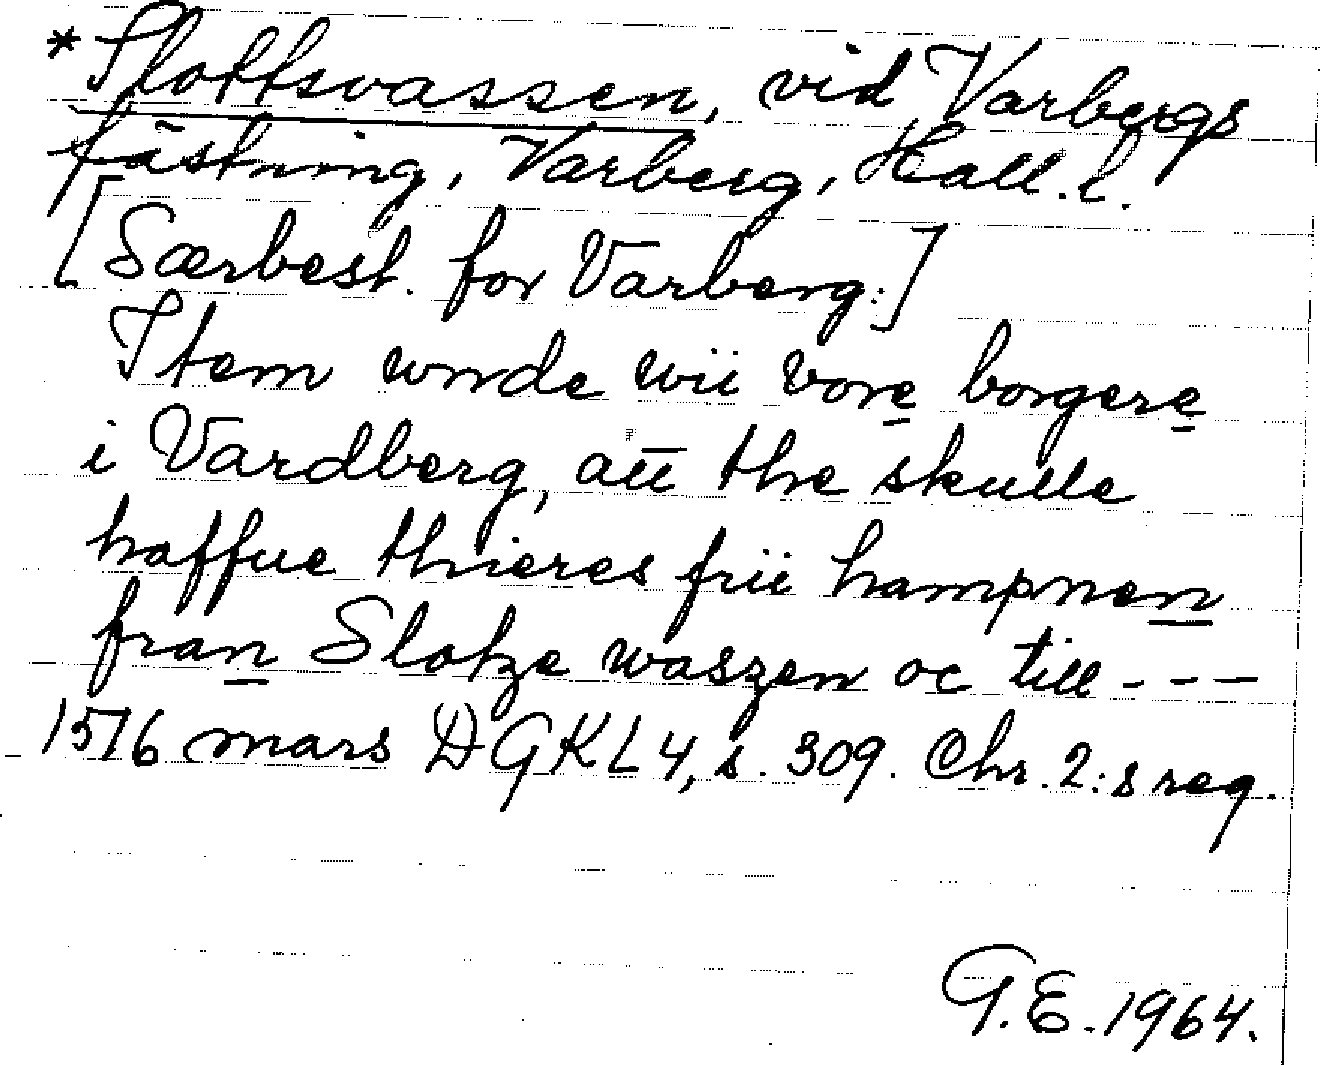 *Slottsvassen, vid Varbergs
fästning, Varberg, Hall.l.
[Særbest. for Varberg:]
Item wnde wii vore borgere
i Vardberg, att the skulle
haffue thieres frii hampnen
fran Slotze waszen oc till - - -
1576 mars DGKL4, s. 309. Chr. 2:s reg.
G.E. 1964.